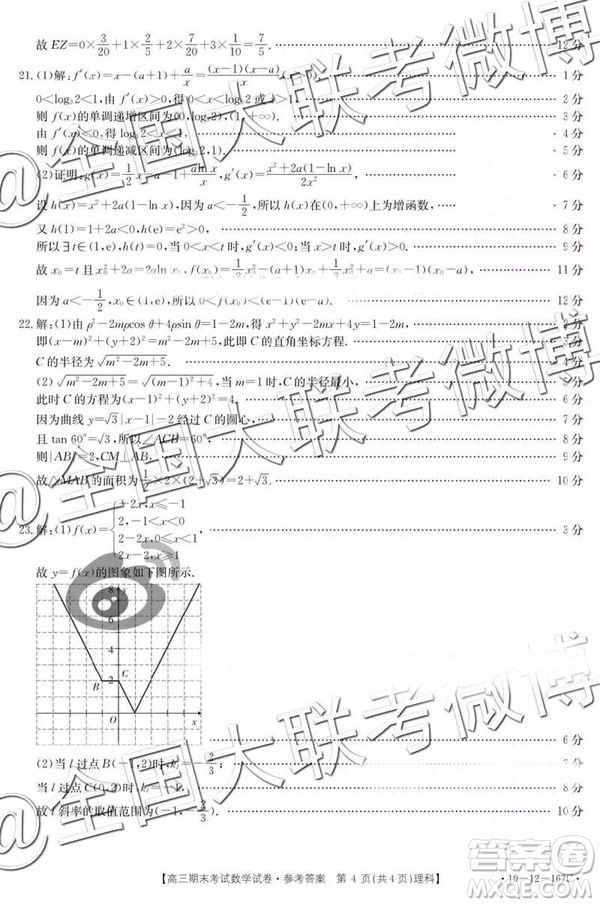 故 EZ=0×3/20+1×2/5+2×7/20+3×1/10=7/5. 12分
21.(1)解:f′(x)=x-(a+1)+a/x=(x-1)(x-a)/x. 1分
0<log₃2<1,由 f′(x)>0,得 0<x<log₃2或x>1, 2分
则 f(x)的单调递增区间为(0,log₃2),(1,+∞). 3分
由 f′(x)<0,得 log₃2<x<1, 4分
则 f(x)的单调递减区间为(log₃2,1). 5分
(2)证明:g(x)=1/2x-a-alnx/x,g′(x)=x²+2a(lnx-1)/2x² 6分
设 h(x)=x²+2a(1-ln x),因为 a<-1/2,所以 h(x)在(0,+∞)上为增函数, 7分
又 h(1)=1+2a<0,h(e)=e²>0, 8分
所以∃t∈(1,e),h(t)=0,当 0<x<t 时,g′(x)<0;当 x>t 时,g′(x)>0, 9分
11分
12分
22.解:(1)由 ρ²-2mρcos θ+4ρsin θ=1-2m,得 x²+y²-2mx+4y=1-2m,
即(x-m)²+(y+2)²=m²-2m+5,此即 C 的直角坐标方程. 3分
C 的半径为√m²-2m+5. 4分
(2)√m²-2m+5=√(m-1)²+4,当 m=1 时,C 的半径最小, 5分
此时 C 的方程为(x-1)²+(y+2)²=4. 6分
因为曲线 y=√3|x-1|-2 经过 C 的圆心, 7分
且 tan 60°=√3,所以∠ACB=60°, 8分
则|AB|=2,CM⊥AB, 9分
故△MAB 的面积为1/2×2×(2+√3)=2+√3. 10分
23.解:(1)f(x)={-2x,x≤-1
2,-1<x<0
2-2x,0≤x<1
2x-2,x≥1 3分
故 y=f(x)的图象如下图所示.
8
6
4
B 2 C
O x
6分
(2)当 l 过点 B(-1,2)时,k₁=-2/3; 7分
当 l 过点 C(0,2)时,k₂=-1. 8分
故 l 斜率的取值范围为(-1,-2/3). 10分
【高三期末考试数学试卷·参考答案 第 4 页(共 4 页)理科】
·19-12-167C·
@全国大联考微博
@全国大联考微博
@全国大联考微博
答案圈